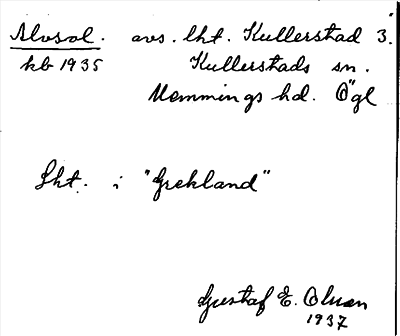 Alvsol. avs. lht. Kullerstad 3.
kb 1935 Kullerstads sn.
Memmings hd. Ögl
Lht. i "Grekland"
Gustaf E. Olsson
1937